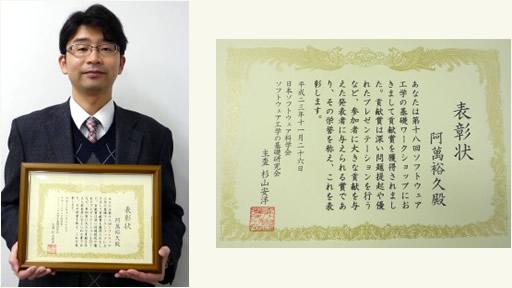 表彰状
阿萬裕久殿
表彰状
阿萬裕久殿
あなたは第十八回ソフトウェア
工学の基礎ワークショップにお
きまして貢献賞を獲得されまし
た。貢献賞は深い問題提起や優
れたプレゼンテーションを行う
など、参加者に大きな貢献を与
えた発表者に与えられる賞であ
り、その栄誉を称え、これを表
彰します。
平成二三年十一月二十六日
日本ソフトウェア科学会
ソフトウェア工学の基礎研究会
主査 杉山安洋